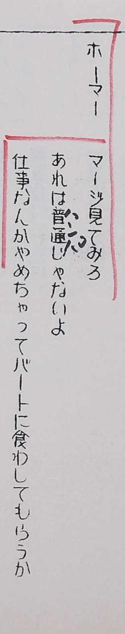 ホーマー マージ見てみろ
あれは普通じゃないよ
仕事なんかやめちゃってバートに食わしてもらうか